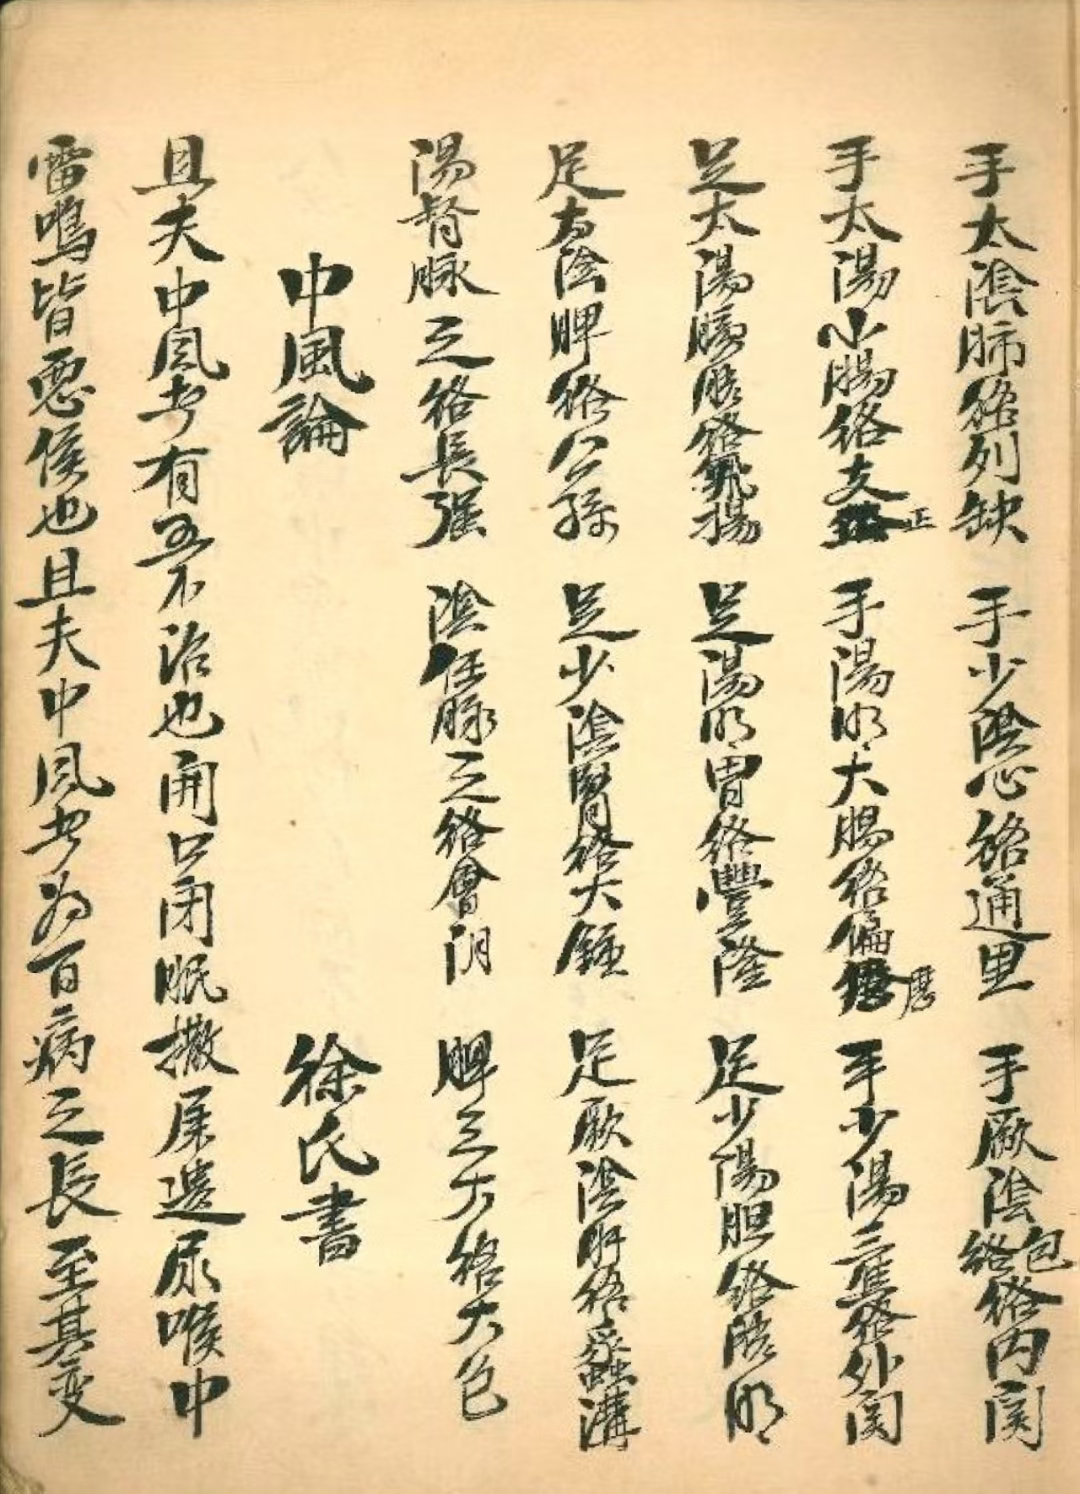 手太陰肺絡列缺　手少陰心絡通里　手厥陰絡包絡内関
手太陽小腸絡支正　手陽明大腸絡偏歷　手少陽三焦絡外関
足太陽膀胱絡飛揚　足陽明胃絡豐隆　足少陽胆絡光明
足太陰脾絡公孫　足少陰腎絡大鍾　足厥陰肝絡蠡溝
陽督脉之絡長强　陰任脉之絡會阴　脾之大絡大包
中風論　徐氏書
且夫中風者有五不治也開口闭眼撒屎遺尿喉中
雷鳴皆惡候也且夫中風者为百病之長至其变